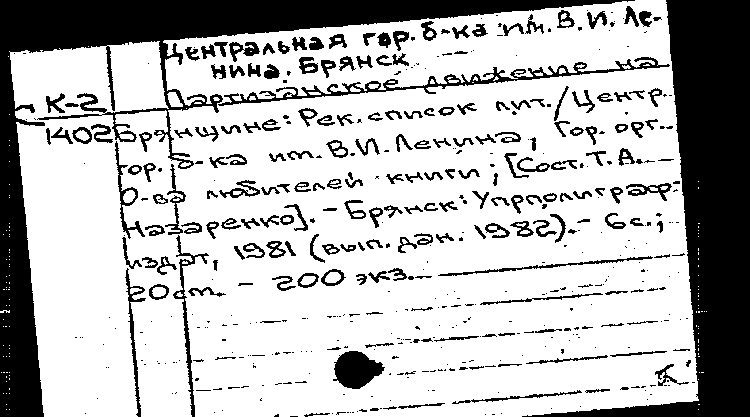 Центральная гор. б-ка им. В.И. Ле-
нина. Брянск
К-2 Партизанское движение на
1402 Брянщине: Рек. список лит. / Центр.
гор. б-ка им. В.И. Ленина, Гор. орг.
О-ва любителей книги; [Сост. Т.А.
Назаренко]. - Брянск: Упрполиграф-
издат, 1981 (вып. дан. 1982). - 6с.;
20 см. - 200 экз.